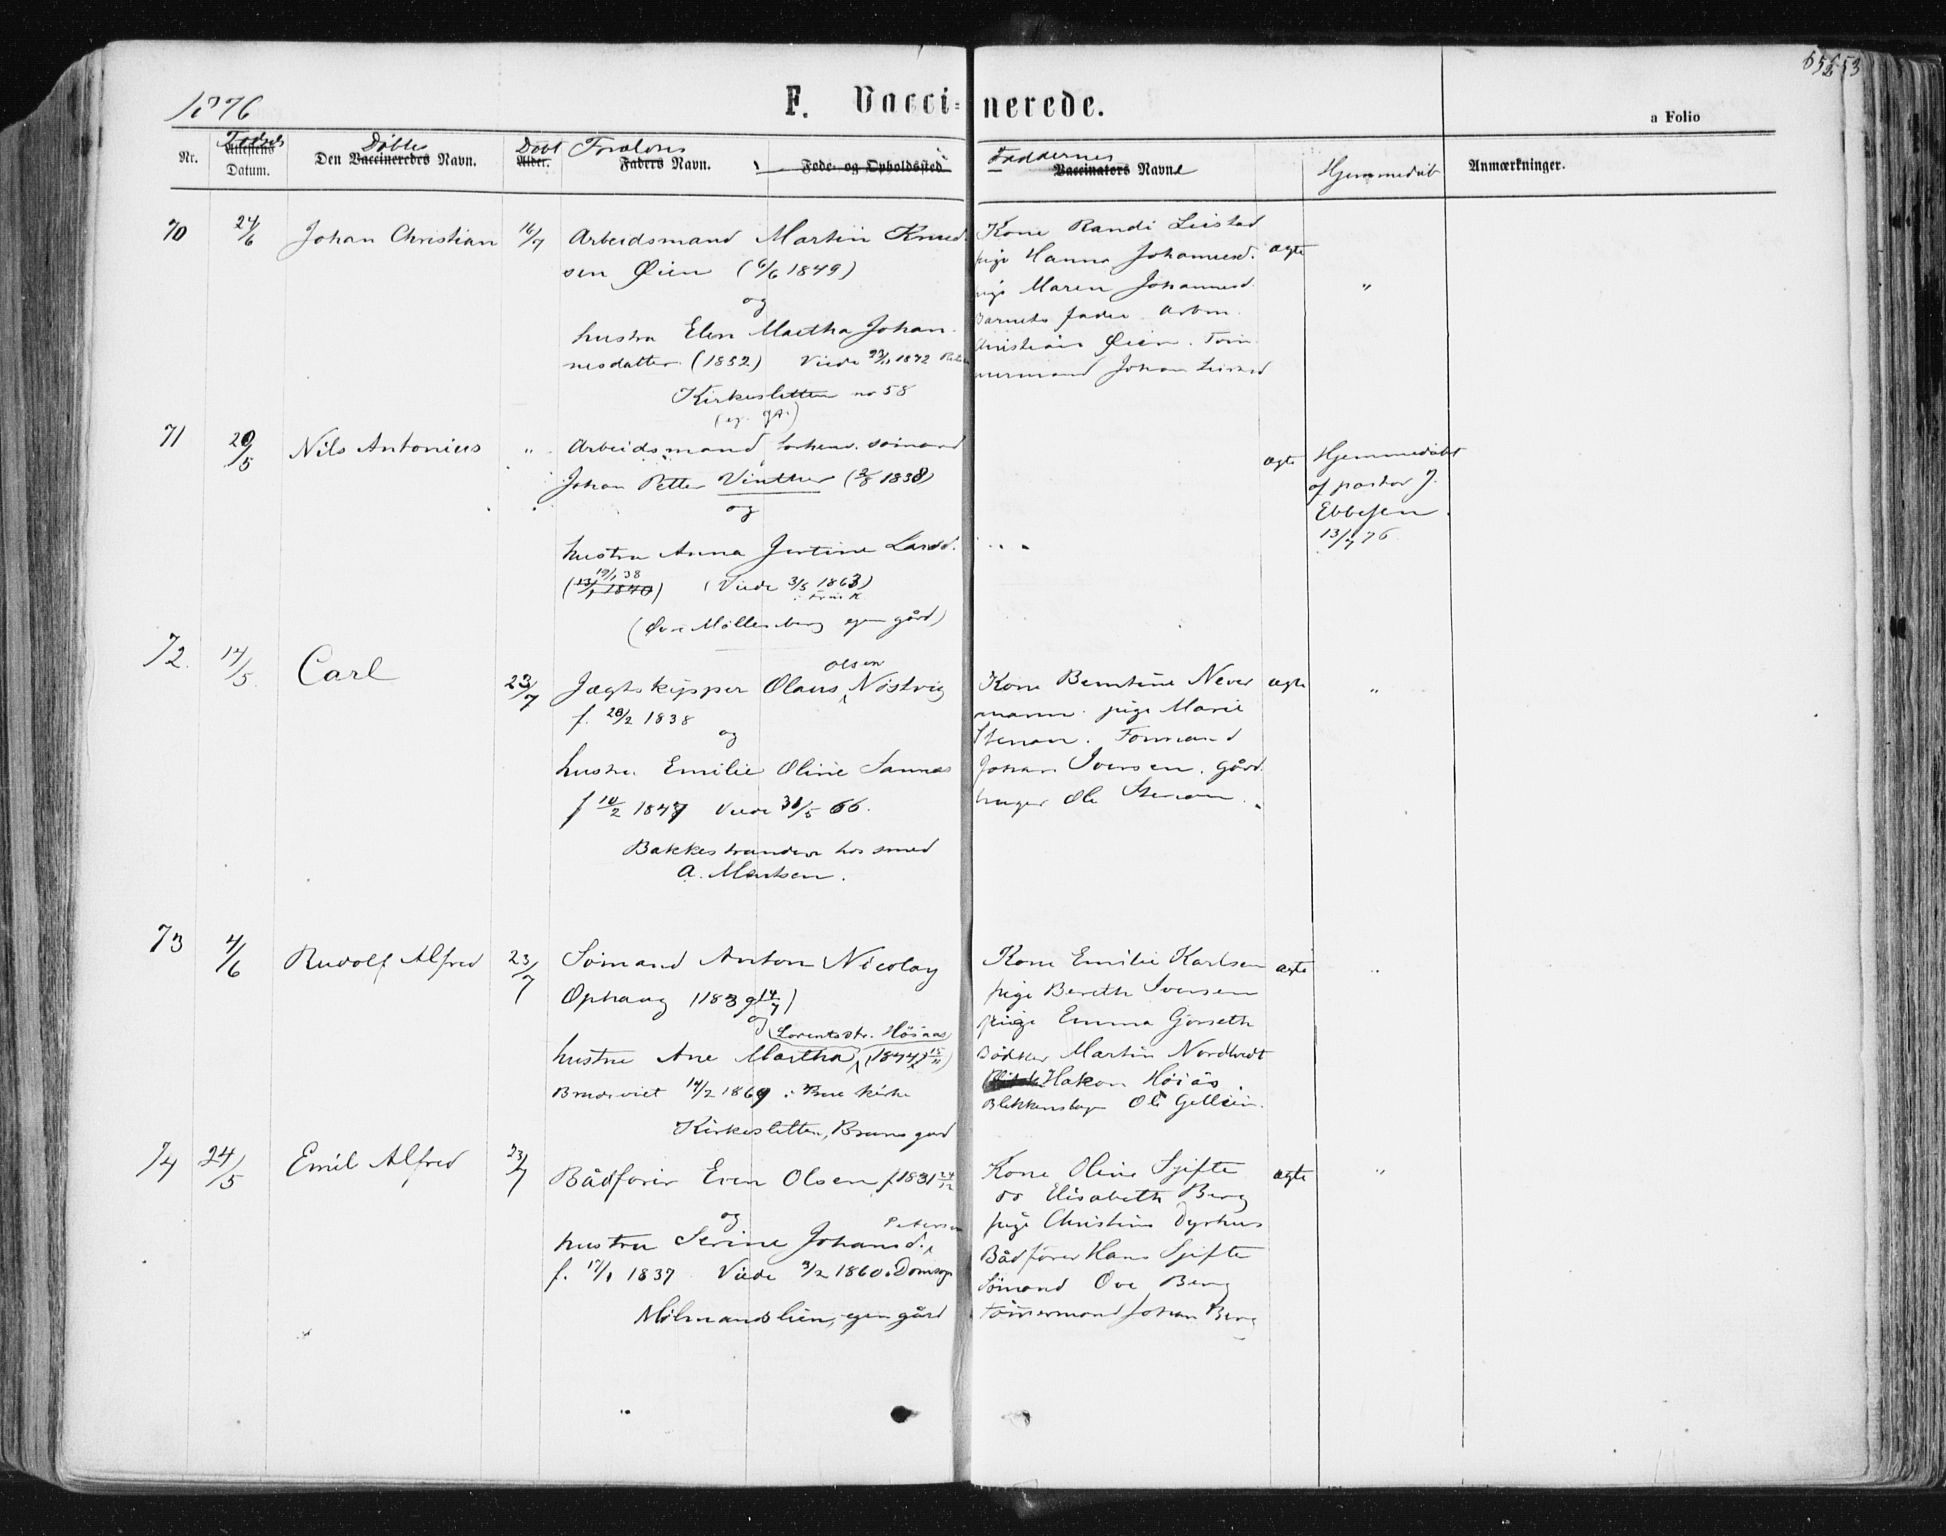 1876
F. Vacci=nerede.
a Folio
Nr.
Fødsels
Attestens
Datum.
Døbtes
Den Vaccineredes Navn.
Døbt
Alder.
Forældres
Faders Navn.
Føde- og Opholdssted
Faddernes
Vaccinators Navne
Hjemmedøbt
Anmærkninger.
70 24/6 Johan Christian 16/7 Arbeidsmand Martin Knud-
sen Øien (6/6 1849)
og
hustru Elen Martha Johan-
nesdatter (1852) Viede 1872
Kirkesletten no 58
Kone Randi Leistad
pige Hanna Johannesd. ægte
pige Maren Johannesd. "
Barnets fader Arbm.
Christian Øien. Tøm-
mermand Johan Leistad
71 20/5 Nils Antonius " Arbeidsmand sømand
Johan Petter Vinther (2/8 1838)
og
hustru Anna Justine Larsd.
19/1 38
(13/1 1840) (Viede 3/5 1863)
(Øvre Møllenberg egen gård)
ægte Hjemmedøbt
af pastor J.
Ebbesen
13/7 76
72. 14/5 Carl 23/7 Jægtskipper Olaus Olsen Nøstvig
f. 28/2 1838
og
hustru Emilie Oline Sannes
f 10/2 1847 Viede 31/5 66.
Bakkestranden hos smed
A. Mentsen.
Kone Berntine Never- ægte "
mann. pige Marie
Stenan. Formand
Johan Iversen. gård-
bruger Ole Stenan.
73 4/6 Rudolf Alfred 23/7 Sømand Anton Nicolay
Ophaug (1839 14/7)
og Lorentsdtr. Høiaas
hustru Ane Martha (1844 15/11)
Brudeviet 14/2 1869 i Bne kirke
Kirkesletten, Bruns gård
Kone Emilie Karlsen ægte "
pige Bereth Svensen
pige Emma Gjørseth
Bødker Martin Nordtvedt
Hakon Høiås
Blikkenslager Ole Gellein.
74 24/5 Emil Alfred 23/7 Bådfører Even Olsen f 1831 24/12
og
hustru Serine Johansd. Petersen
f. 17/1 1837 Viede 3/2 1860 i Domsogn
Ihlmandslien, egen gård
Kone Oline Sjifte ægte "
do Elisabeth Berg
pige Christine Dyrhus
Bådfører Hans Sjifte
Sømand Ove Berg
Tømmermand Johan Berg